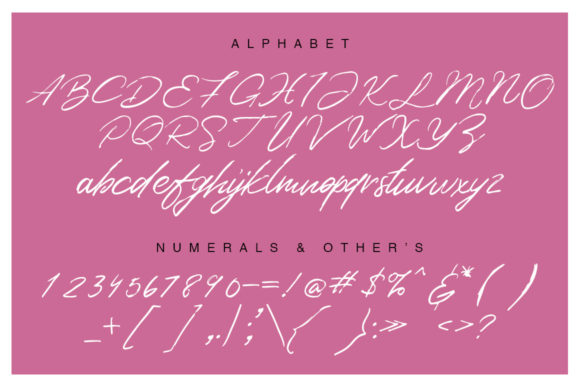 ALPHABET
ABCDEFGHIJKLMNO
PQRSTUVWXYZ
abcdefghijklmnopqrstuvwxyz
NUMERALS & OTHER'S
1234567890-=!@#$%^&*()
_+[],.|;'\{}:》<>?